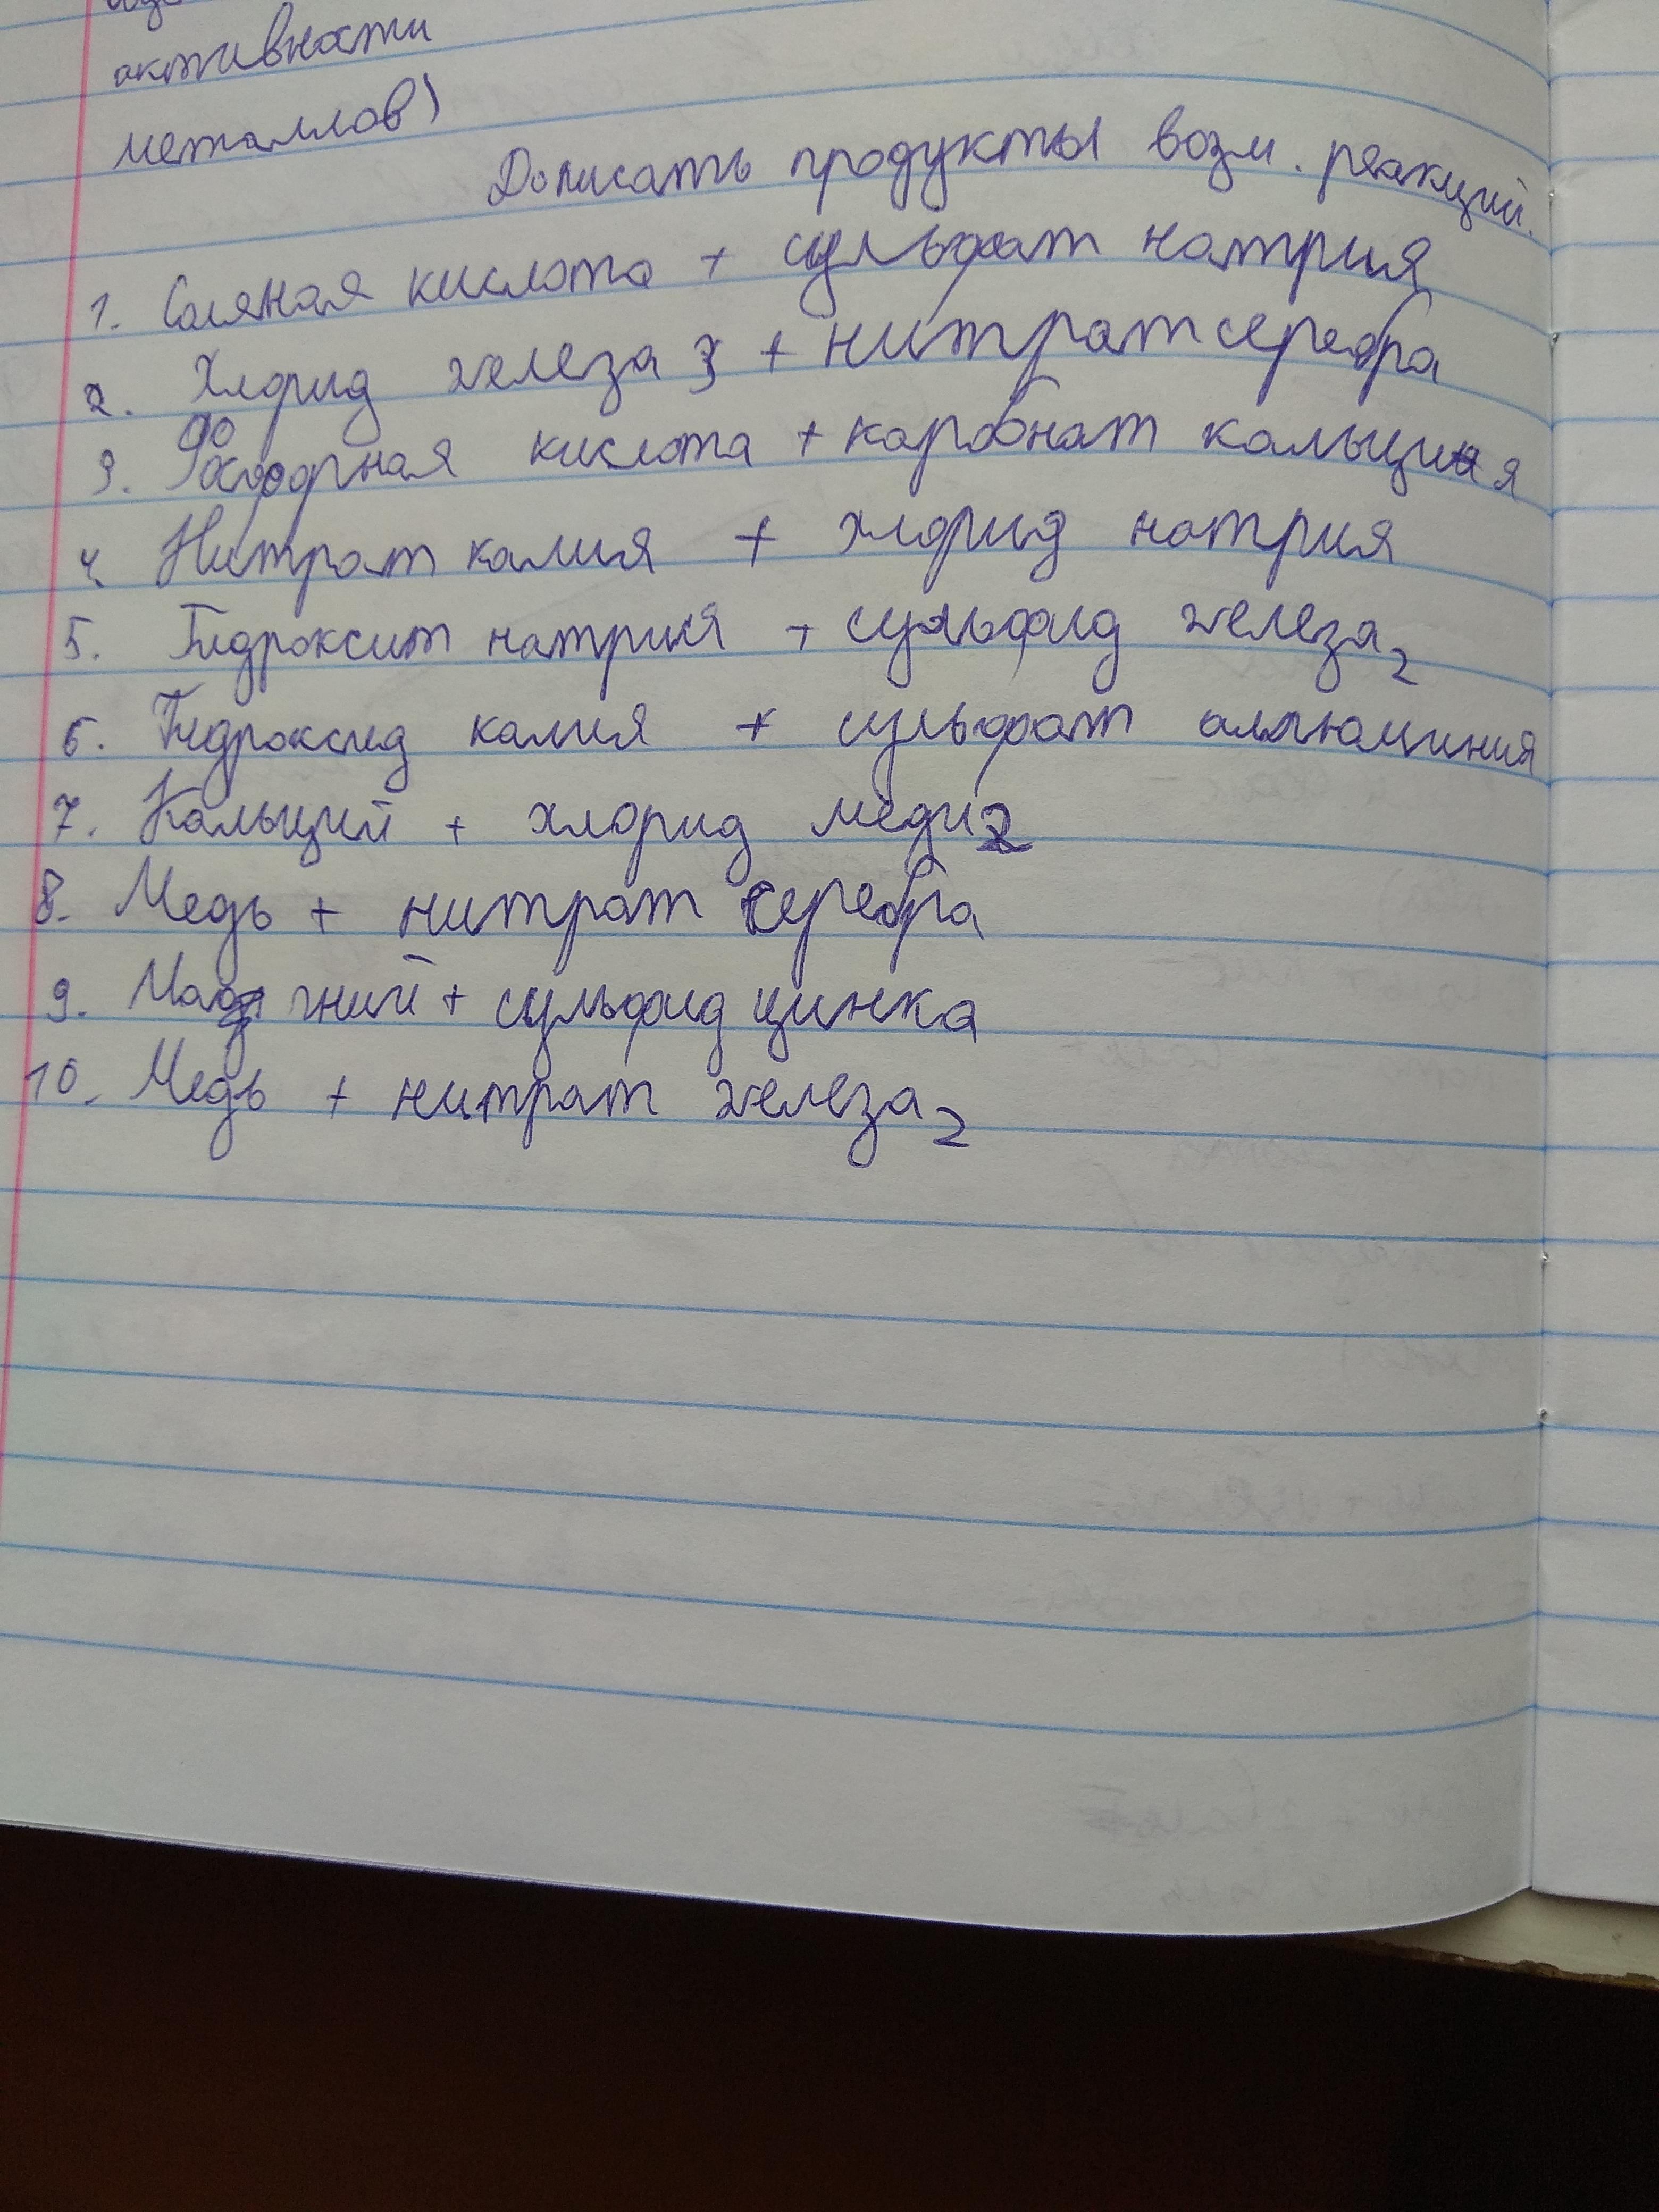 активности
металлов)
Дописать продукты возм. реакций.
1. Соляная кислота + сульфат натрия
2. Хлорид железа 3 + нитрат серебра
3. Фосфорная кислота + карбонат кальция
4. Нитрат калия + хлорид натрия
5. Гидроксит натрия + сульфид железа 2
6. Гидроксид калия + сульфат аллюминия
7. Кальций + хлорид меди 2
8. Медь + нитрат серебра
9. Магний + сульфид цинка
10. Медь + нитрат железа 2